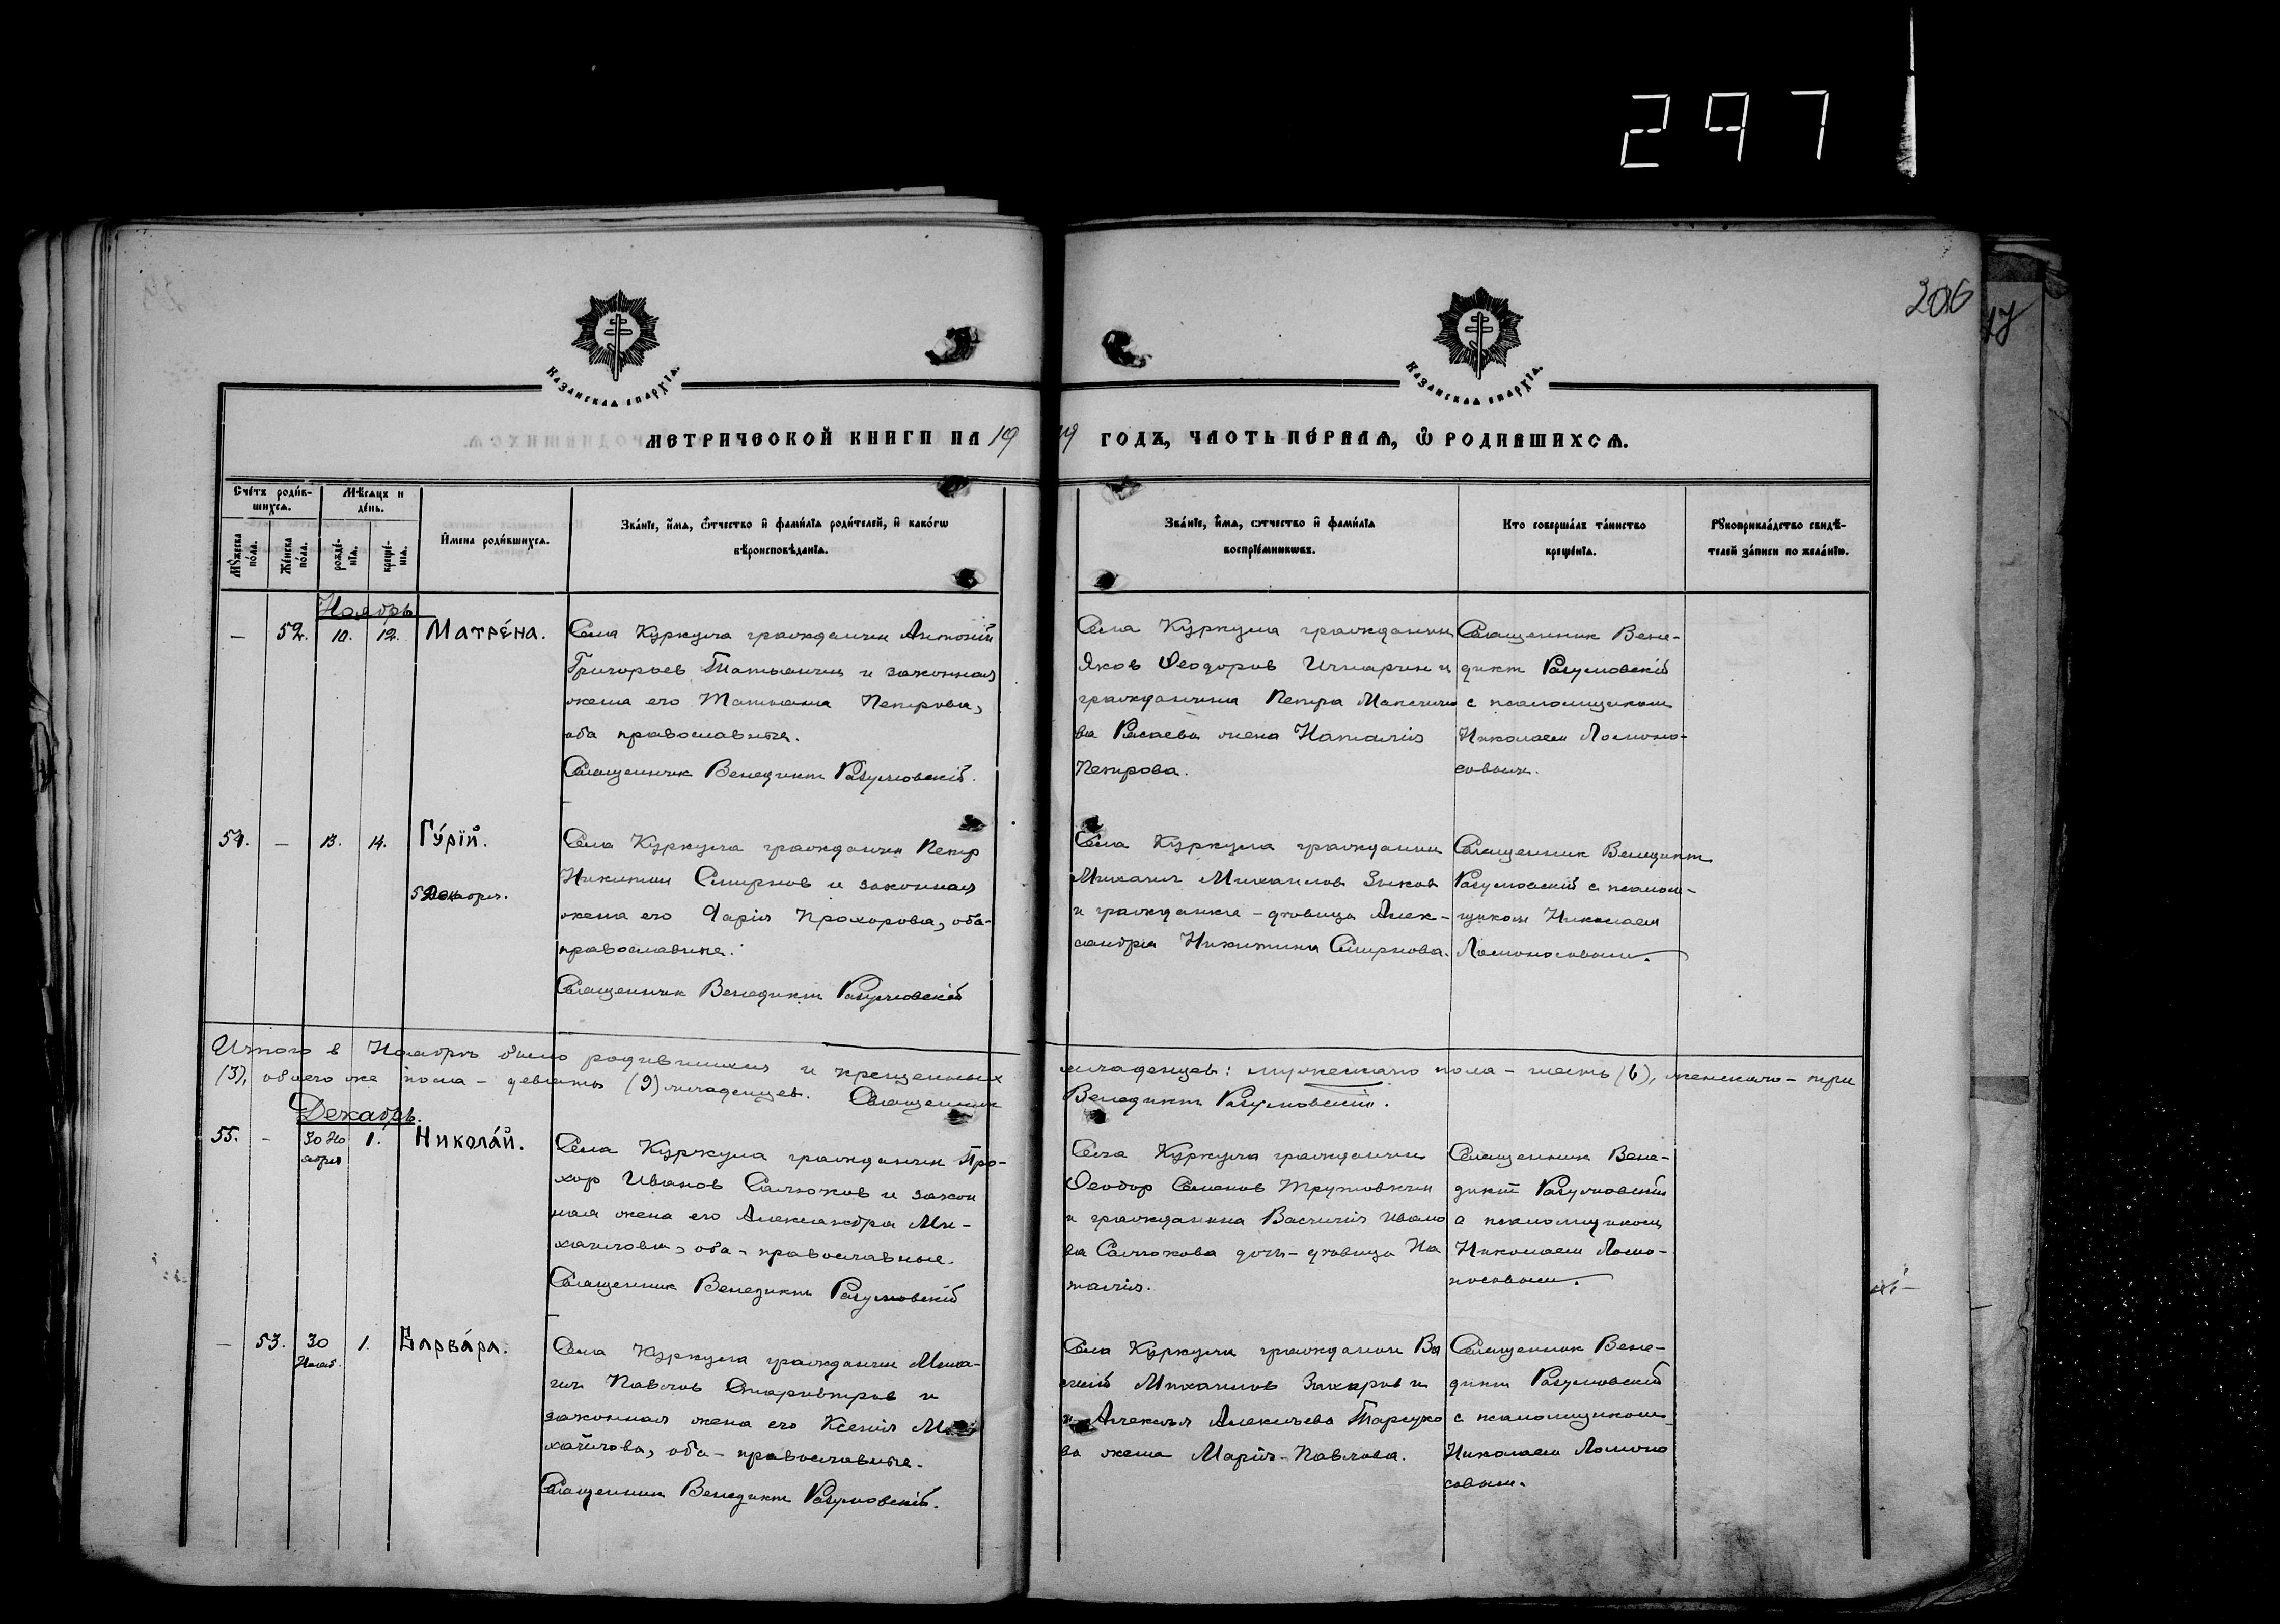 297
206
17
Казанская епархїа.
Казанская епархїа.
МЕТРИЧЕСКОЙ КНИГИ НА 1919 ГОДЪ, ЧАСТЬ ПЕ́РВАѦ, Ѿ РОДИВШИХСѦ.
Сче́тъ роди́в-
шихсѧ.
Мѣ́сѧцъ и
де́нь.
Мꙋ́жеска
по́ла.
Же́нска
по́ла.
рожде́-
нїѧ.
креще́-
нїѧ.
И́мена роди́вшихсѧ.
Зва́нїе, и́мѧ, ѻ́тчество и҆ фами́лїѧ роди́телей, и҆ како́гѡ
вѣроисповѣ́данїѧ.
Зва́нїе, и́мѧ, ѻ́тчество и҆ фами́лїѧ
воспрїе́мникѡвъ.
Кто соверша́лъ та́инство
креще́нїѧ.
Рꙋкоприкла́дство свидѣ́-
телей за́писи по жела́нїю.
Ноябрь
— 52. 10. 12. Матре́на.
Села Куркула гражданин Антоній
Григорьев и законная
жена его Татьяна Петрова,
оба православные.
Священник Венедикт Разумовскій.
Села Куркула гражданин
Яков Феодоров и
гражданина Петра Максимо
ва жена Наталія
Петрова.
Священник Вене-
дикт Разумовскій
с псаломщиком
Николаем Ломоно-
совым.
54. — 13. 14. Гу́рїй.
Декабря.
Села Куркула гражданин Петр
Никитин Смирнов и законная
жена его Дарія Прохорова, оба-
православные.
Священник Венедикт Разумовскій
Села Куркула гражданин
Михаил Михаилов Зыков
и гражданка - девица Алек-
сандра Никитина Смирнова.
Священник Венедикт
Разумовскій с псалом-
щиком Николаем
Ломоносовым.
Итого в Ноябре было родившихся и крещенных младенцев: мужескаго пола - шесть (6), женскаго - три
(3), обоего же пола - девять (9) младенцев. Священник Венедикт Разумовскій.
Декабрь.
55. - 30 Но 1. Никола́й.
ября
Села Куркула гражданин Про-
хор Иванов Салюков и закон
ная жена его Александра Ми-
хаилова, оба - православные.
Священник Венедикт Разумовскій
Села Куркула гражданин
Феодор Семенов
и гражданина Василія Ивано
ва Салюкова дочь - девица На
талія.
Священник Вене-
дикт Разумовскій
с псаломщиком
Николаем Ломо-
носовым.
— 53. 30 1. Варва́ра.
Нояб.
Села Куркула гражданин Миха-
ил Павлов и
законная жена его Ксенія Ми
хайлова, оба - православные.
Священник Венедикт Разумовскій.
Села Куркула гражданин Ва
силій Михаилов Захаров и
Алексія Алексеева
ва жена Марія Павлова.
Священник Вене-
дикт Разумовскій
с псаломщиком
Николаем Ломоно
совым.